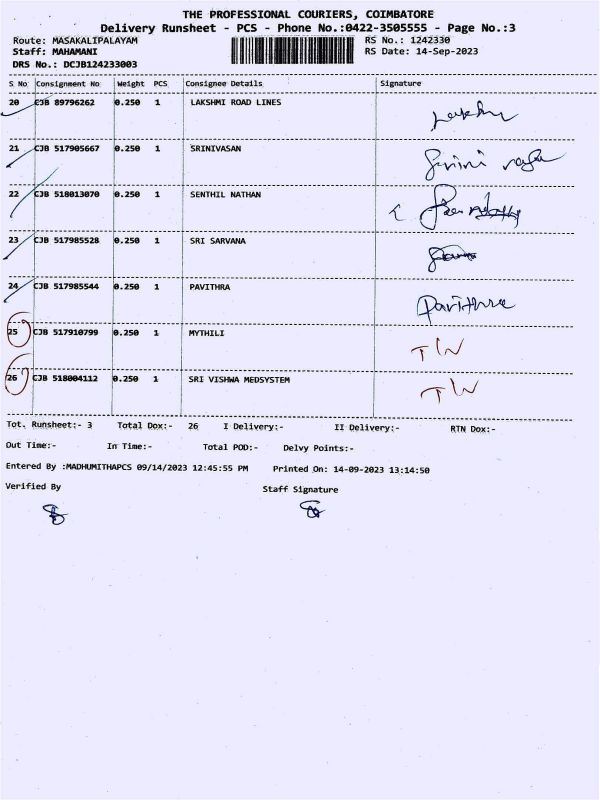 THE PROFESSIONAL COURIERS, COIMBATORE
Delivery Runsheet - PCS - Phone No.:0422-3505555 - Page No.:3
Route: MASAKALIPALAYAM RS No.: 1242330
Staff: MAHAMANI RS Date: 14-Sep-2023
DRS No.: DCJB124233003
S No Consignment No Weight PCS Consignee Details Signature
20 CJB 89796262 0.250 1 LAKSHMI ROAD LINES
21 CJB 517905667 0.250 1 SRINIVASAN
22 CJB 518013070 0.250 1 SENTHIL NATHAN
23 CJB 517985528 0.250 1 SRI SARVANA
24 CJB 517985544 0.250 1 PAVITHRA Pavithra
25 CJB 517910799 0.250 1 MYTHILI T/N
26 CJB 518004112 0.250 1 SRI VISHWA MEDSYSTEM T/N
Tot. Runsheet:- 3 Total Dox:- 26 I Delivery:- II Delivery:- RTN Dox:-
Out Time:- In Time:- Total POD:- Delvy Points:-
Entered By :MADHUMITHAPCS 09/14/2023 12:45:55 PM Printed On: 14-09-2023 13:14:50
Verified By Staff Signature